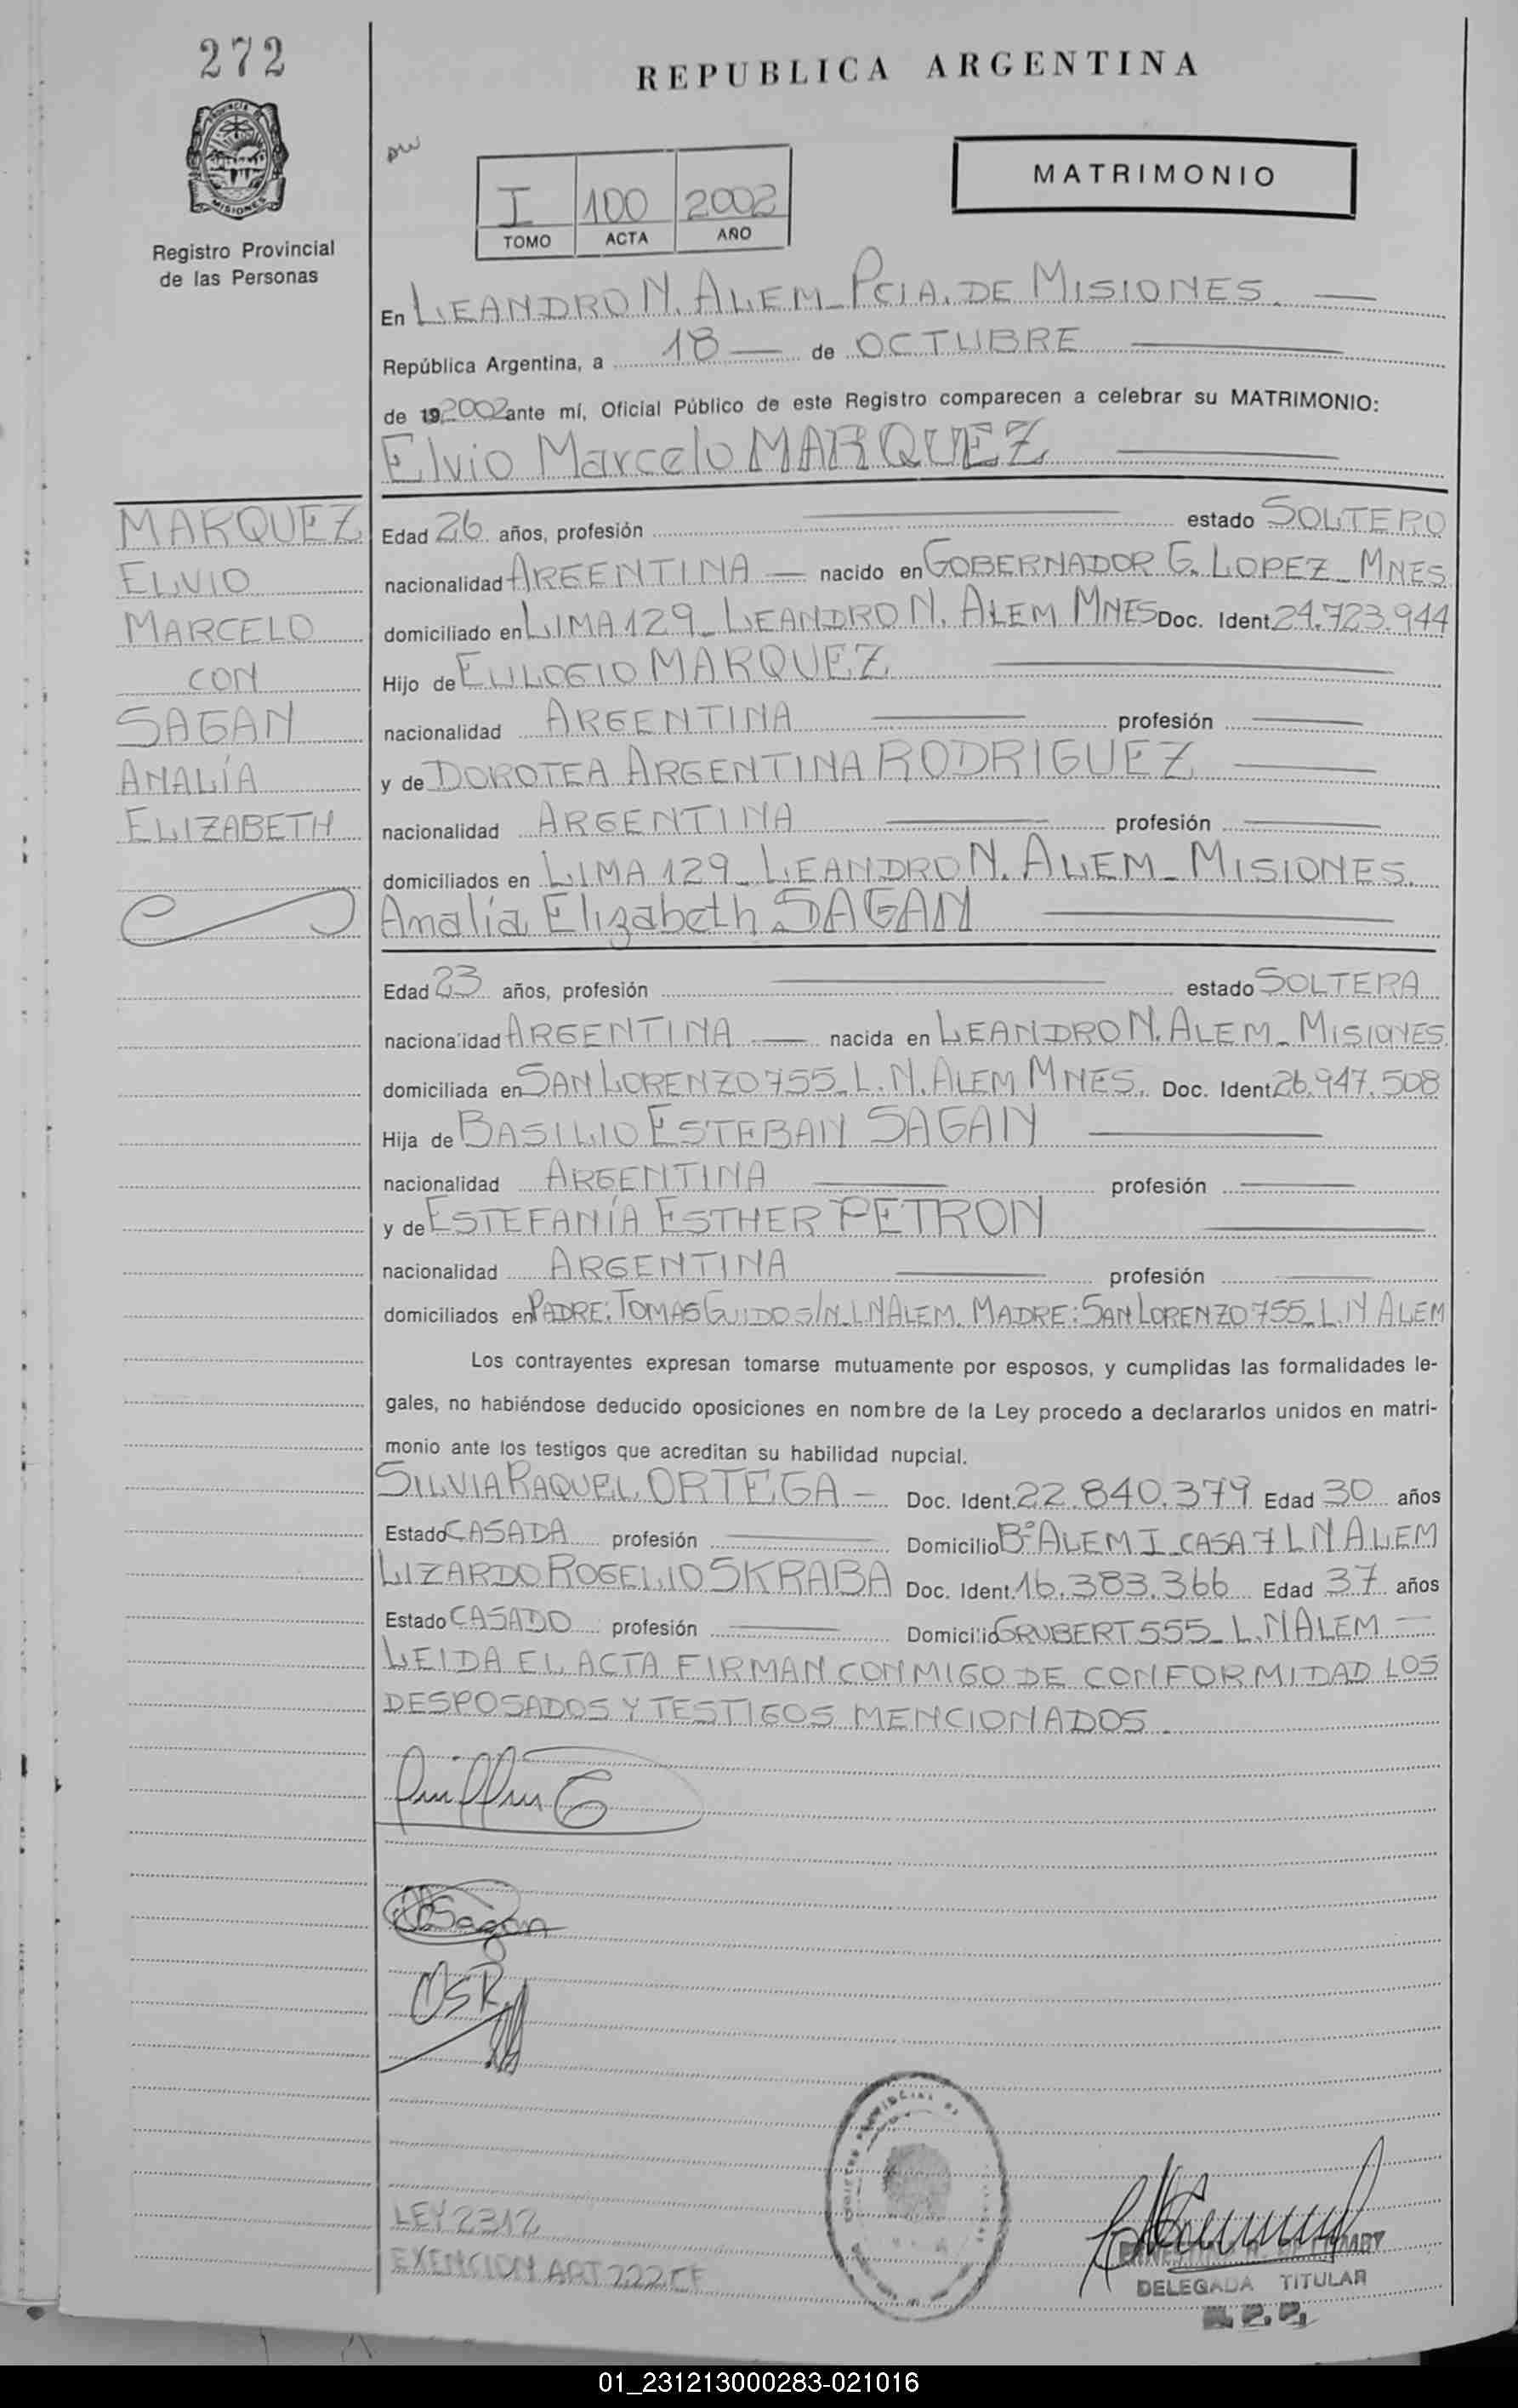 272
REPUBLICA ARGENTINA
PROVINCIA DE
MISIONES
Registro Provincial
de las Personas
I 100 2002
TOMO ACTA AÑO
MATRIMONIO
En LEANDRO N. ALEM_PCIA. DE MISIONES.
República Argentina, a 18 — de OCTUBRE
de 19 2002 ante mí, Oficial Público de este Registro comparecen a celebrar su MATRIMONIO:
Elvio Marcelo MARQUEZ
MARQUEZ
ELVIO
MARCELO
CON
SAGAN
ANALÍA
ELIZABETH
Edad 26 años, profesión estado SOLTERO
nacionalidad ARGENTINA — nacido en GOBERNADOR G. LOPEZ_MNES.
domiciliado en LIMA 129_LEANDRO N. ALEM MNES Doc. Ident. 24.723.944
Hijo de EULOGIO MARQUEZ
nacionalidad ARGENTINA profesión
y de DOROTEA ARGENTINA RODRIGUEZ
nacionalidad ARGENTINA profesión
domiciliados en LIMA 129_LEANDRO N. ALEM_MISIONES.
Analía Elizabeth SAGAN
Edad 23 años, profesión estado SOLTERA
nacionalidad ARGENTINA — nacida en LEANDRO N. ALEM_MISIONES.
domiciliada en SAN LORENZO 755_L.N. ALEM MNES. Doc. Ident. 26.947.508
Hija de BASILIO ESTEBAN SAGAN
nacionalidad ARGENTINA profesión
y de ESTEFANÍA ESTHER PETRON
nacionalidad ARGENTINA profesión
domiciliados en PADRE: TOMAS GUIDO S/N_LN ALEM. MADRE: SAN LORENZO 755_L.N ALEM
Los contrayentes expresan tomarse mutuamente por esposos, y cumplidas las formalidades le-
gales, no habiéndose deducido oposiciones en nombre de la Ley procedo a declararlos unidos en matri-
monio ante los testigos que acreditan su habilidad nupcial.
SILVIA RAQUEL ORTEGA — Doc. Ident. 22.840.379 Edad 30 años
Estado CASADA profesión Domicilio Bº ALEM I_CASA 7 LN ALEM
LIZARDO ROGELIO SKRABA Doc. Ident. 16.383.366 Edad 37 años
Estado CASADO profesión Domicilio GRUBERT 555_L.N ALEM —
LEIDA EL ACTA FIRMAN CONMIGO DE CONFORMIDAD LOS
DESPOSADOS Y TESTIGOS MENCIONADOS.
Sagan
LEY 2312
EXENCION ART 222 CF
DELEGADA TITULAR
01_231213000283-021016